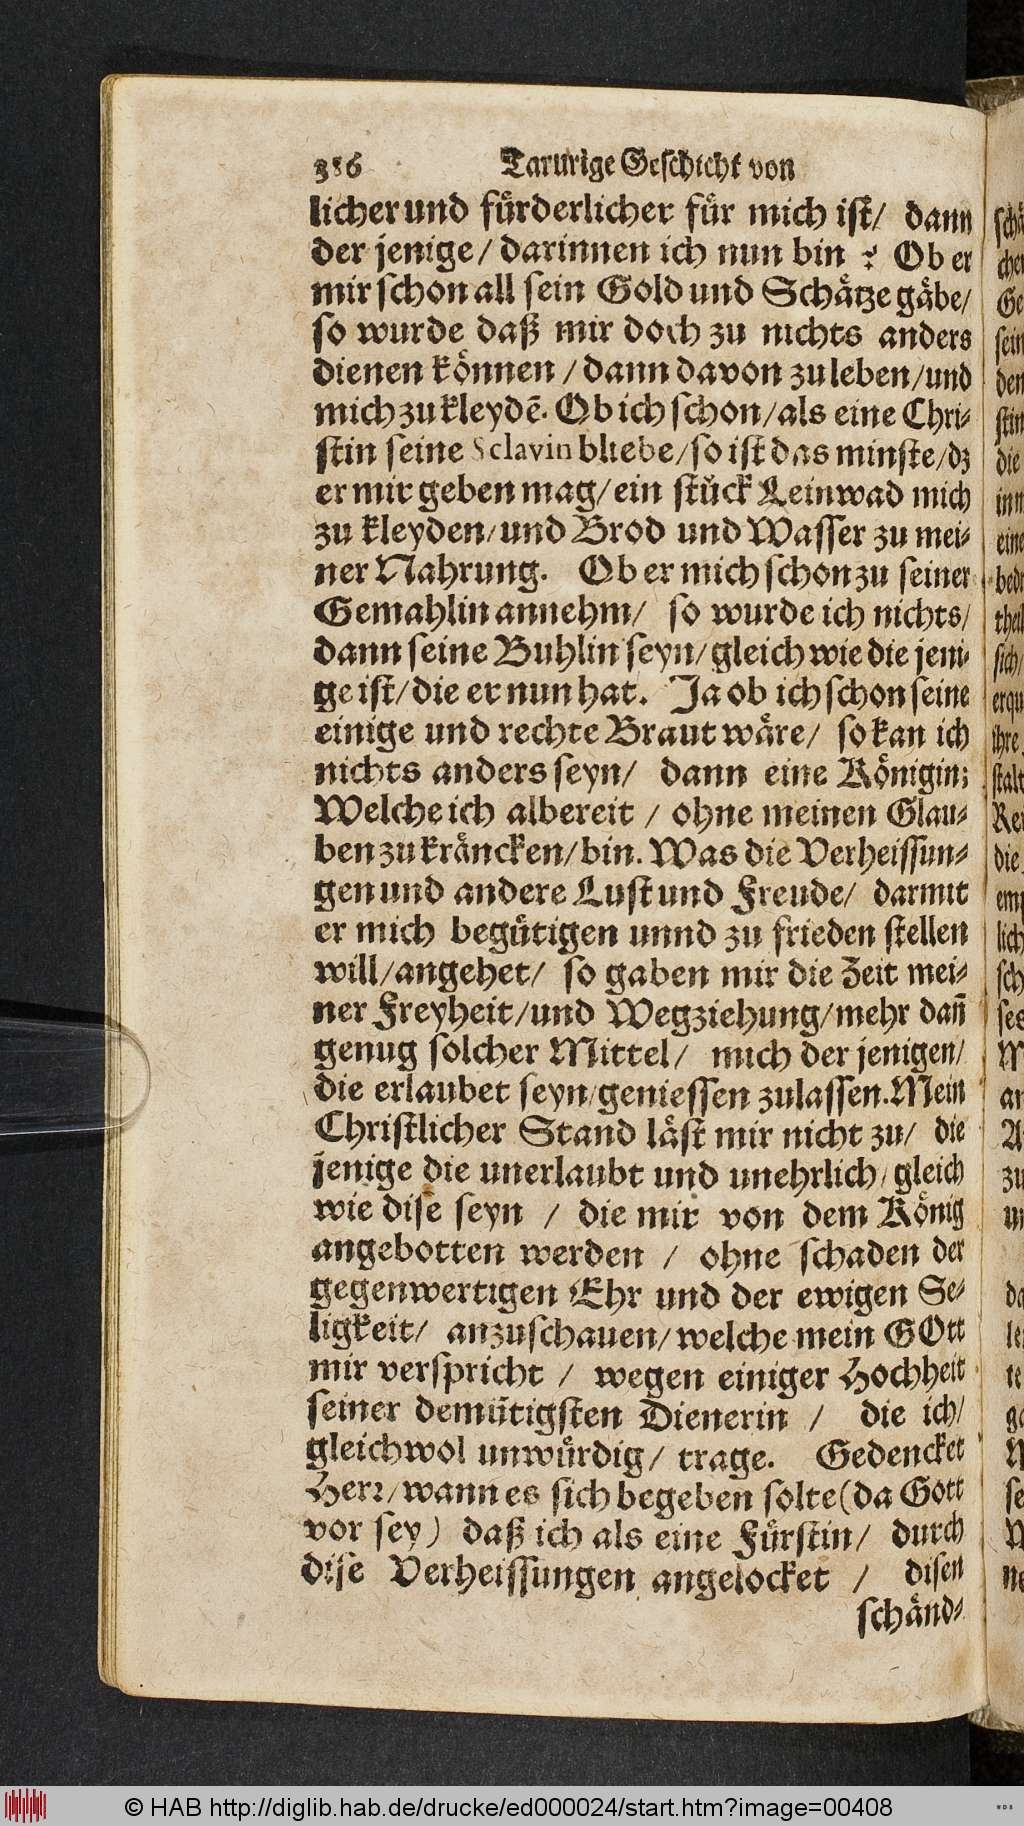 386 Tarurige Geschicht von
licher und fuͤrderlicher fuͤr mich ist/ dann
der jenige/ darinnen ich nun bin ? Ob er
mir schon all sein Gold und Schaͤtze gaͤbe/
so wurde daß mir doch zu nichts anders
dienen koͤnnen / dann davon zu leben/ und
mich zu kleydē. Ob ich schon/ als eine Chri-
stin seine Sclavin bliebe/ so ist das minste/ dz
er mir geben mag/ ein stuͤck Leinwad mich
zu kleyden/ und Brod und Wasser zu mei-
ner Nahrung. Ob er mich schon zu seiner
Gemahlin annehm/ so wurde ich nichts/
dann seine Buhlin seyn/ gleich wie die jeni-
ge ist/ die er nun hat. Ja ob ich schon seine
einige und rechte Braut waͤre/ so kan ich
nichts anders seyn/ dann eine Koͤnigin;
Welche ich albereit / ohne meinen Glau-
ben zu kraͤncken/ bin. Was die Verheissun-
gen und andere Lust und Freude/ darmit
er mich beguͤtigen unnd zu frieden stellen
will/ angehet/ so gaben mir die Zeit mei-
ner Freyheit/ und Wegziehung/ mehr dañ
genug solcher Mittel/ mich der jenigen/
die erlaubet seyn/ geniessen zulassen. Mein
Christlicher Stand laͤst mir nicht zu/ die
jenige die unerlaubt und unehrlich/ gleich
wie dise seyn / die mir von dem Koͤnig
angebotten werden / ohne schaden der
gegenwertigen Ehr und der ewigen Se-
ligkeit/ anzuschauen/ welche mein GOtt
mir verspricht / wegen einiger Hochheit
seiner demuͤtigsten Dienerin / die ich/
gleichwol unwuͤrdig/ trage. Gedencket
Herr/ wann es sich begeben solte (da Gott
vor sey) daß ich als eine Fuͤrstin/ durch
dise Verheissungen angelocket / disen
schaͤnd-
© HAB http://diglib.hab.de/drucke/ed000024/start.htm?image=00408